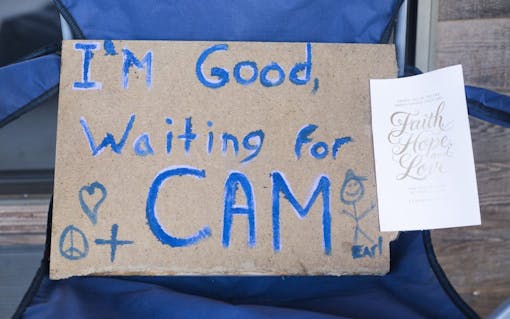 I'M Good,
Waiting for
CAM
EAT!
Faith,
Hope, and
Love